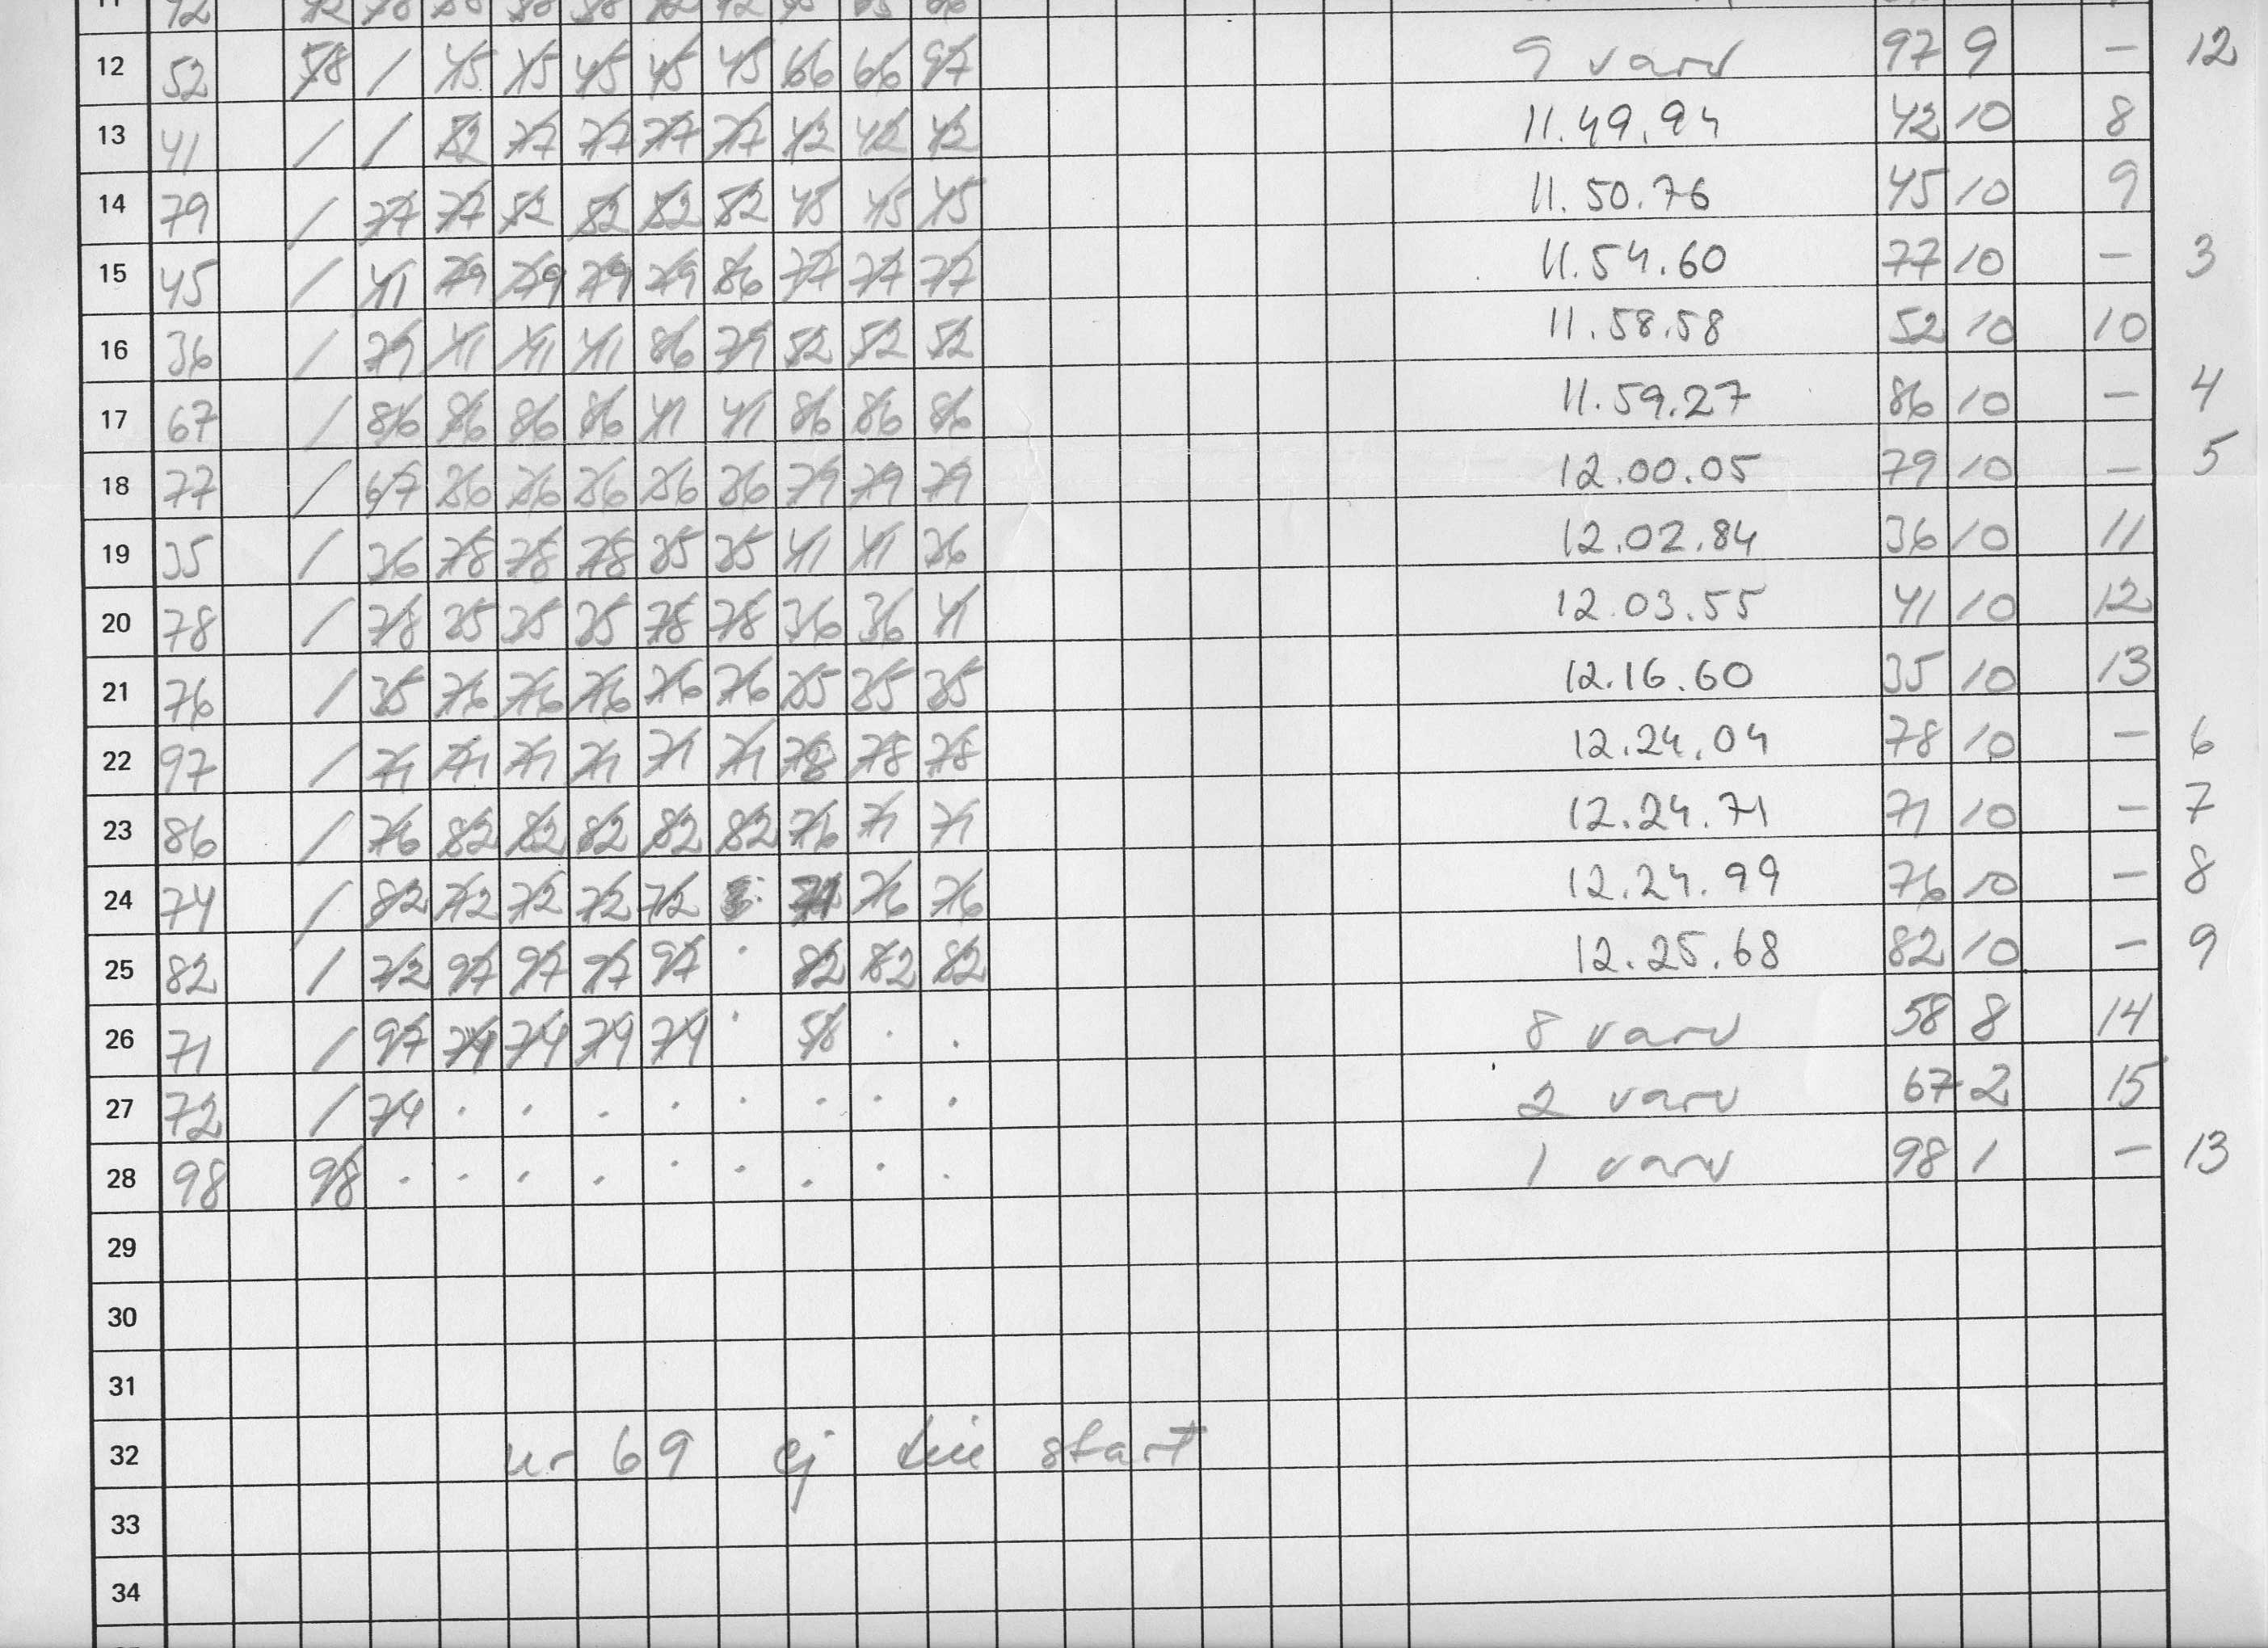 12 52 58 / 45 45 45 45 45 66 66 97 9 varv 97 9 – 12
13 41 / / 52 77 77 77 77 42 42 42 11.49.94 42 10 8
14 79 / 77 77 52 52 52 52 45 45 45 11.50.76 45 10 9
15 45 / 41 79 79 79 79 86 77 77 77 11.54.60 77 10 – 3
16 36 / 79 41 41 41 86 79 52 52 52 11.58.58 52 10 10
17 67 / 86 86 86 86 41 41 86 86 86 11.59.27 86 10 – 4
18 77 / 67 36 36 36 36 36 79 79 79 12.00.05 79 10 – 5
19 35 / 36 78 78 78 35 35 41 41 36 12.02.84 36 10 11
20 78 / 78 35 35 35 78 78 36 36 41 12.03.55 41 10 12
21 76 / 35 76 76 76 76 76 35 35 35 12.16.60 35 10 13
22 97 / 71 71 71 71 71 71 78 78 78 12.24.04 78 10 – 6
23 86 / 76 82 82 82 82 82 76 71 71 12.24.71 71 10 – 7
24 74 / 82 72 72 72 72 71 76 76 12.24.99 76 10 – 8
25 82 / 72 97 97 97 97 · 82 82 82 12.25.68 82 10 – 9
26 71 / 97 74 74 74 74 · 58 · · 8 varv 58 8 14
27 72 / 74 · · · · · · · · 2 varv 67 2 15
28 98 98 · · · · · · · · · 1 varv 98 1 – 13
29
30
31
32 nr 69 ej till start
33
34